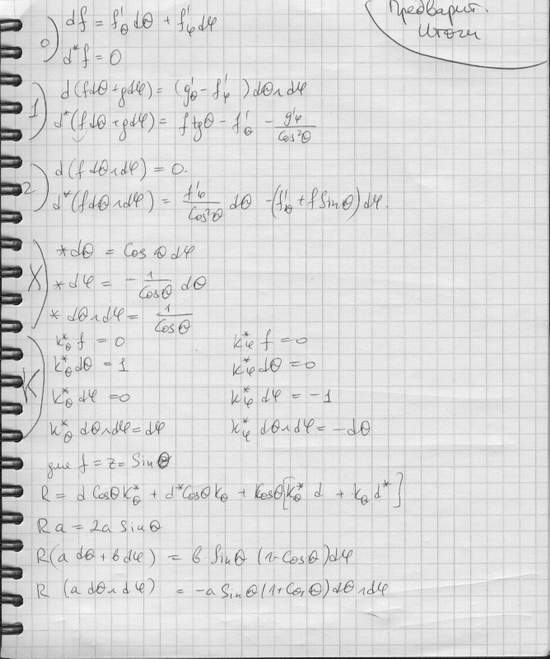 Предварит.
Итоги
0) df = f'_θ dθ + f'_φ dφ
d*f = 0
1) d(f dθ + g dφ) = (g'_θ - f'_φ) dθ∧dφ
d*(f dθ + g dφ) = f tgθ - f'_θ - g'_φ / Cos²θ
2) d(f dθ∧dφ) = 0.
d*(f dθ∧dφ) = f'_φ / Cos²θ dθ - (f'_θ + f Sinθ) dφ.
X) * dθ = Cos θ dφ
* dφ = - 1/Cosθ dθ
* dθ∧dφ = 1/Cosθ
K) k*_θ f = 0 k*_φ f = 0
k*_θ dθ = 1 k*_φ dθ = 0
k*_θ dφ = 0 k*_φ dφ = -1
k*_θ dθ∧dφ = dφ k*_φ dθ∧dφ = -dθ
для f = z = Sinθ
R = d Cosθ k*_θ + d* Cosθ k_θ + Cosθ [k*_θ d + k_θ d*]
R a = 2a Sinθ
R (a dθ + b dφ) = b Sinθ (1-Cosθ) dφ
R (a dθ∧dφ) = -a Sinθ (1+Cosθ) dθ∧dφ